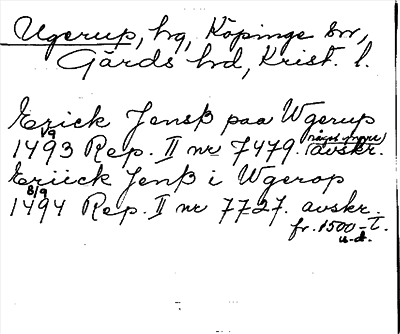 Ugerup, hg, Köpinge sn,
Gärds hd, Krist. l.
Erick Jensß paa Wgerup
1/9
1493 Rep. II nr 7479. (något yngre) avskr.
Eriick Jenß i Wgerop
8/9
1494 Rep. II nr 7727. avskr.
fr. 1500-t.
u.d.